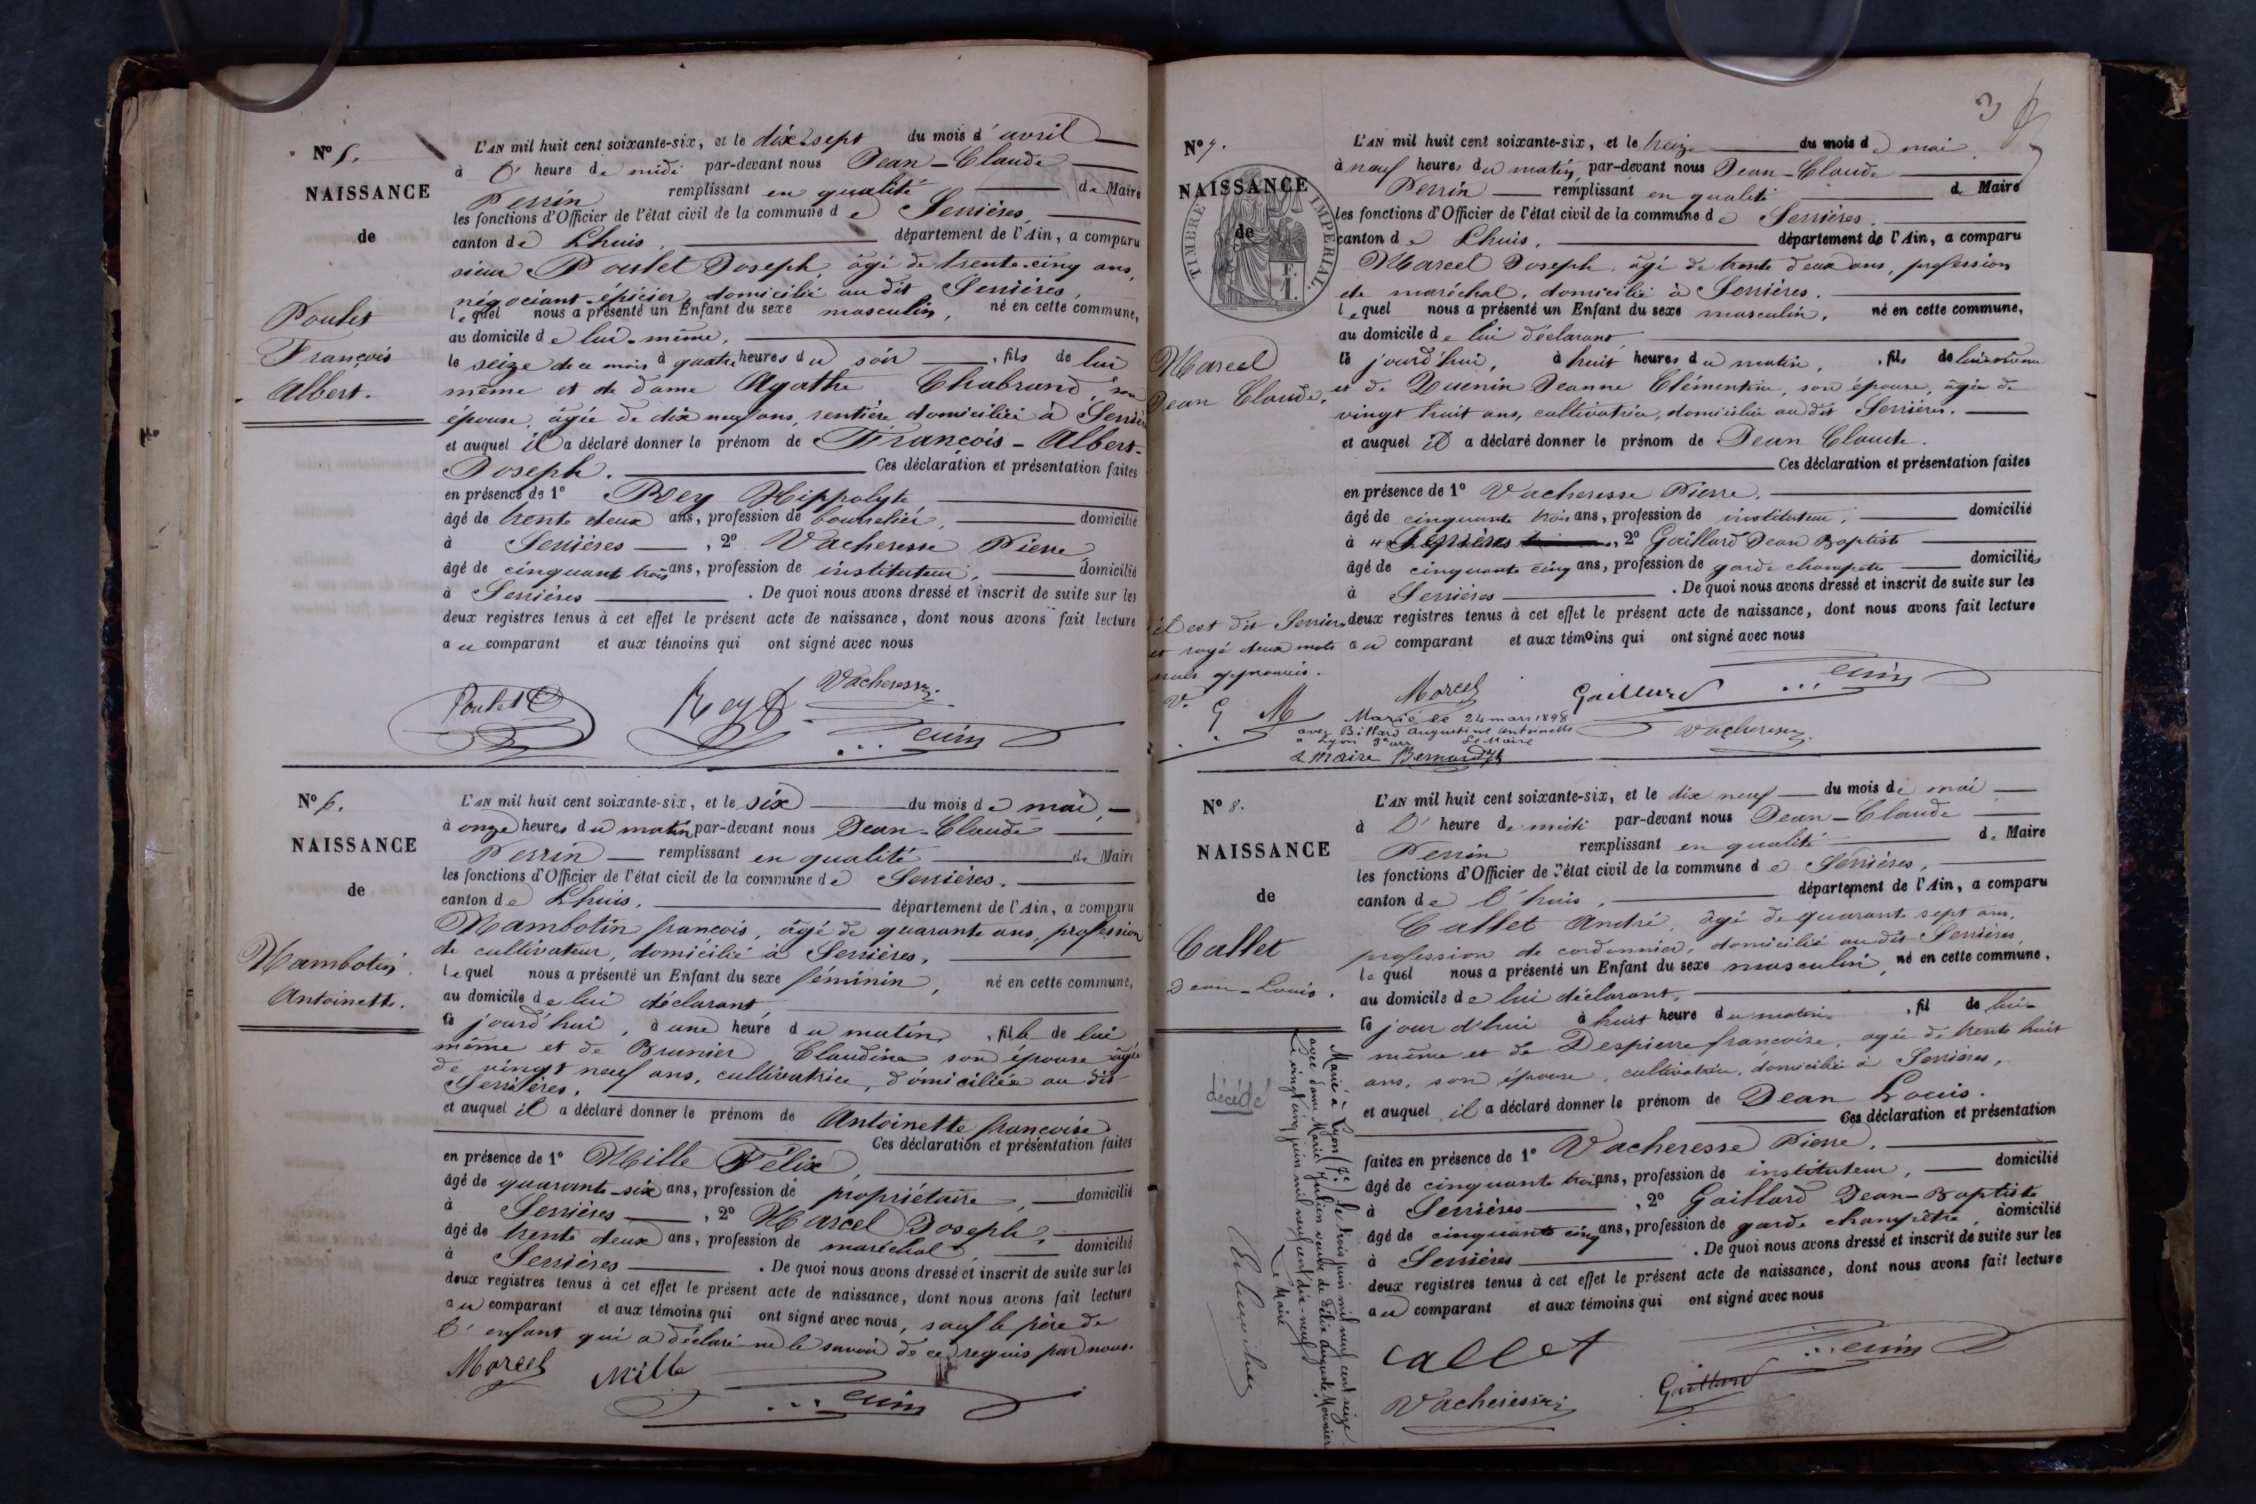 Nº 5.
NAISSANCE
de
Poulet
François
Albert.
L'AN mil huit cent soixante-six, et le dix-sept du mois d'avril
à l'heure de midi par-devant nous Jean-Claude
Perrin remplissant en qualité de Maire
les fonctions d'Officier de l'état civil de la commune de Serrières,
canton de Lhuis, département de l'Ain, a comparu
sieur Poulet Joseph, âgé de trente-cinq ans,
négociant-épicier, domicilié au dit Serrières,
lequel nous a présenté un Enfant du sexe masculin, né en cette commune,
au domicile de lui-même,
le seize de ce mois à quatre heures du soir, fils de lui
même et de dame Agathe Chabrand, son
épouse, âgée de dix neuf ans, rentière domiciliée à Serrières
et auquel il a déclaré donner le prénom de François-Albert-
Joseph. Ces déclaration et présentation faites
en présence de 1º Rey Hippolyte
âgé de trente deux ans, profession de bourrelier, domicilié
à Serrières, 2º Vacheresse Pierre
âgé de cinquante trois ans, profession de instituteur, domicilié
à Serrières. De quoi nous avons dressé et inscrit de suite sur les
deux registres tenus à cet effet le présent acte de naissance, dont nous avons fait lecture
au comparant et aux témoins qui ont signé avec nous
Poulet Rey H Vacheresse
Perrin
Nº 6.
NAISSANCE
de
Mambotin
Antoinette.
L'AN mil huit cent soixante-six, et le six du mois de mai,
à onze heures du matin par-devant nous Jean-Claude
Perrin remplissant en qualité de Maire
les fonctions d'Officier de l'état civil de la commune de Serrières,
canton de Lhuis, département de l'Ain, a comparu
Mambotin françois, âgé de quarante ans, profession
de cultivateur, domicilié à Serrières,
lequel nous a présenté un Enfant du sexe féminin, né en cette commune,
au domicile de lui déclarant
ce jourd'hui, à une heure du matin, fille de lui
même et de Brunier Claudine son épouse âgée
de vingt neuf ans, cultivatrice, domiciliée au dit
Serrières,
et auquel il a déclaré donner le prénom de Antoinette françoise
Ces déclaration et présentation faites
en présence de 1º Mille Félix,
âgé de quarante-six ans, profession de propriétaire, domicilié
à Serrières, 2º Marcel Joseph,
âgé de trente deux ans, profession de maréchal, domicilié
à Serrières. De quoi nous avons dressé et inscrit de suite sur les
deux registres tenus à cet effet le présent acte de naissance, dont nous avons fait lecture
au comparant et aux témoins qui ont signé avec nous, sauf le père de
l'enfant qui a déclaré ne le savoir de ce requis par nous.
Marcel Mille
Perrin
3
Nº 7.
NAISSANCE
de
TIMBRE IMPERIAL.
Marcel
Jean Claude.
L'AN mil huit cent soixante-six, et le treize du mois de mai
à neuf heures du matin, par-devant nous Jean-Claude
Perrin remplissant en qualité de Maire
les fonctions d'Officier de l'état civil de la commune de Serrières,
canton de Lhuis, département de l'Ain, a comparu
Marcel Joseph, âgé de trente deux ans, profession
de maréchal, domicilié à Serrières.
lequel nous a présenté un Enfant du sexe masculin, né en cette commune,
au domicile de lui déclarant
ce jourd'hui, à huit heures du matin, fils de lui-même
et de Quenin Jeanne Clémentine, son épouse, âgée de
vingt huit ans, cultivatrice, domiciliée au dit Serrières.
et auquel il a déclaré donner le prénom de Jean Claude.
Ces déclaration et présentation faites
en présence de 1º Vacheresse Pierre.
âgé de cinquante trois ans, profession de instituteur, domicilié
à Serrières, 2º Gaillard Jean Baptiste
âgé de cinquante cinq ans, profession de garde champêtre domiciliés
à Serrières. De quoi nous avons dressé et inscrit de suite sur les
deux registres tenus à cet effet le présent acte de naissance, dont nous avons fait lecture
au comparant et aux témoins qui ont signé avec nous
il est dit Serrières
et rayé deux mots
nuls approuvés.
V. G M
Marcel Gaillard Perrin
Vacheresse
Marié le 24 mars 1898
avec Billard Augustine Antoinette
à Lyon Le Maire
Le Maire Bernard
Nº 8.
NAISSANCE
de
Callet
Jean-Louis.
décédé
L'AN mil huit cent soixante-six, et le dix neuf du mois de mai
à l'heure de midi par-devant nous Jean-Claude
Perrin remplissant en qualité de Maire
les fonctions d'Officier de l'état civil de la commune de Serrières,
canton de l'huis, département de l'Ain, a comparu
Callet André, âgé de quarante sept ans,
profession de cordonnier, domicilié au dit Serrières,
lequel nous a présenté un Enfant du sexe masculin, né en cette commune,
au domicile de lui déclarant,
ce jour d'hui à huit heure du matin, fil de lui-
même et de Despierre françoise, agée de trente huit
ans, son épouse, cultivatrice, domiciliée à Serrières,
et auquel il a déclaré donner le prénom de Jean Louis.
Ces déclaration et présentation
faites en présence de 1º Vacheresse Pierre,
âgé de cinquante trois ans, profession de instituteur, domicilié
à Serrières, 2º Gaillard Jean-Baptiste
âgé de cinquante cinq ans, profession de garde champêtre, domicilié
à Serrières. De quoi nous avons dressé et inscrit de suite sur les
deux registres tenus à cet effet le présent acte de naissance, dont nous avons fait lecture
au comparant et aux témoins qui ont signé avec nous
Callet Perrin
Vacheresse Gaillard
Marié à Lyon le trois juin mil neuf cent seize
avec dame Marie Julien veuve de Félix Auguste Mounier
Le vingt cinq juin mil neuf cent dix-neuf
Le Maire